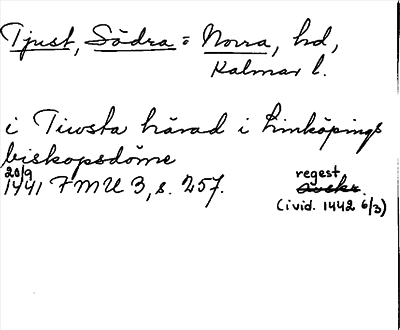 Tjust, Södra = Norra, hd,
Kalmar l.
i Tiwsta härad i Linköpings
biskopsdöme
20/9
1441 FMU 3, s. 257.
regest
avskr.
(i vid. 1442 6/3)